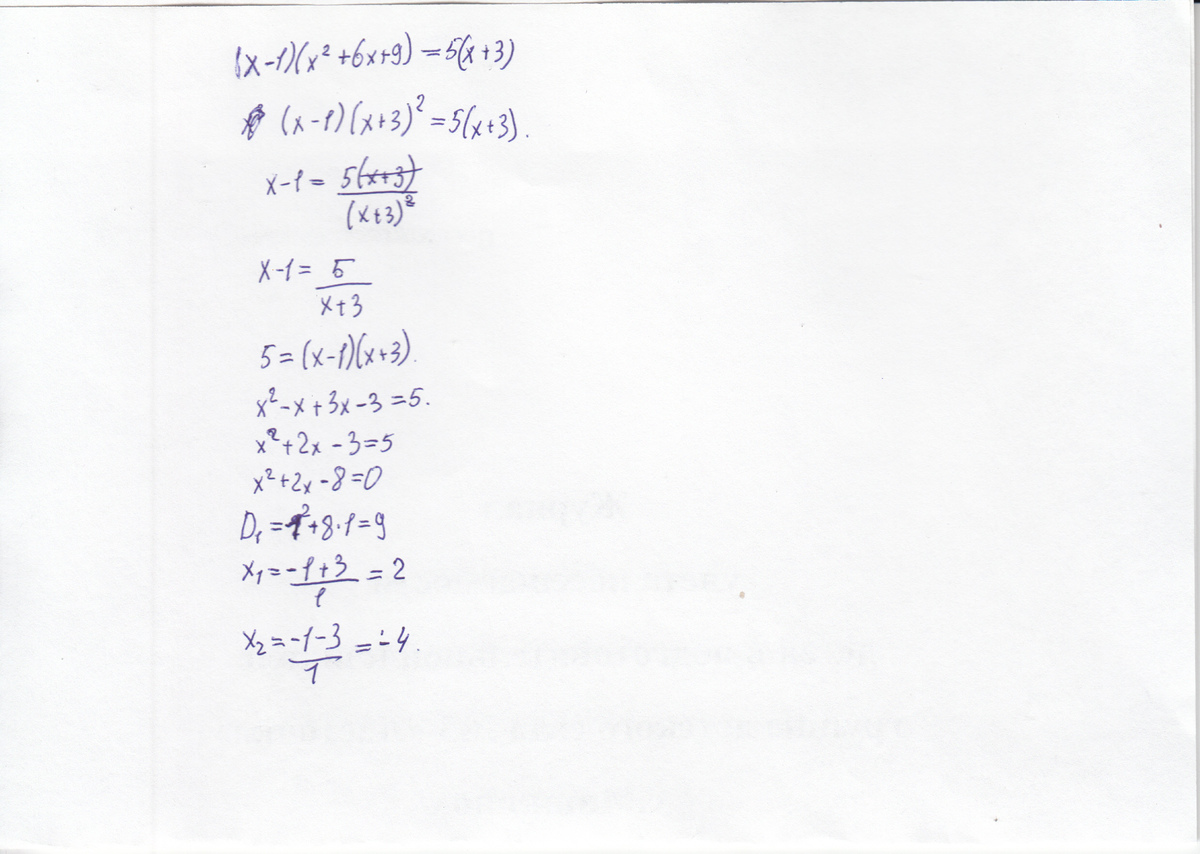 (x-1)(x²+6x+9)=5(x+3)
(x-1)(x+3)²=5(x+3).
x-1=5(x+3)/(x+3)²
x-1=5/(x+3)
5=(x-1)(x+3).
x²-x+3x-3=5.
x²+2x-3=5
x²+2x-8=0
D₁=1²+8·1=9
x₁=(-1+3)/1=2
x₂=(-1-3)/1=-4.